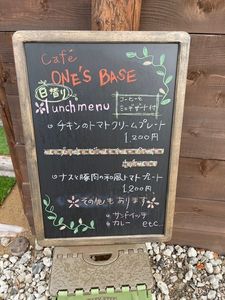 Café
ONE'S BASE
日替り
Lunch menu
コーヒーと
ミニデザート付
チキンのトマトクリームプレート
1,200円
ナスと豚肉の和風トマトプレート
1,200円
その他もあります
サンドイッチ
カレー etc...